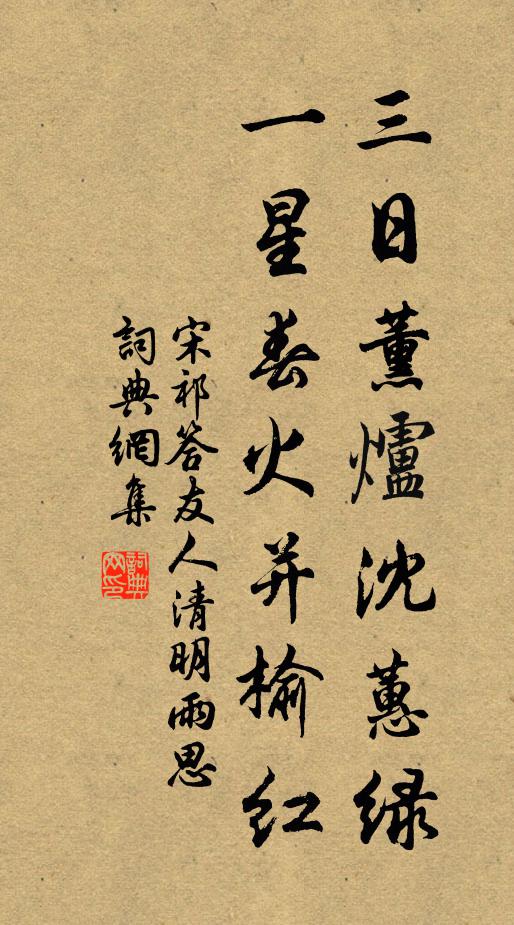 三日薰爐沈蕙綠
一星春火并榆紅
宋祁答友人清明雨思
詞典網集
詞典網印